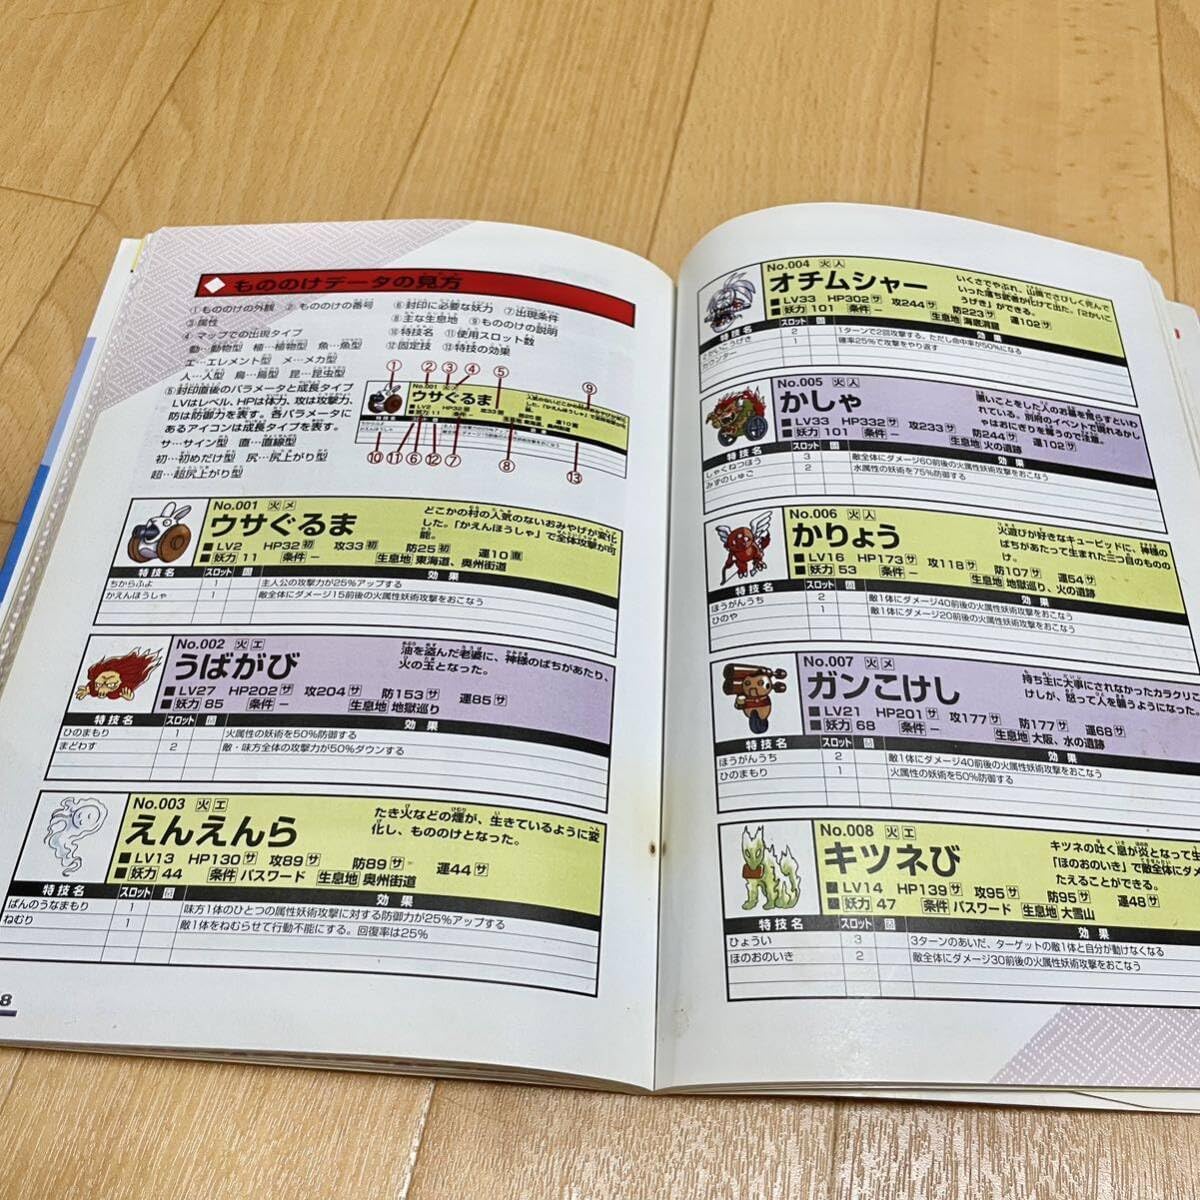 もののけデータの見方
①もののけの外観 ②もののけの番号
③属性
④マップでの出現タイプ
動…動物型 植…植物型 魚…魚型
エ…エレメント型 メ…メカ型
人…人型 鳥…鳥型 昆…昆虫型
⑤封印直後のパラメータと成長タイプ
LVはレベル、HPは体力、攻は攻撃力、
防は防御力を表す。各パラメータに
あるアイコンは成長タイプを表す。
サ…サイン型 直…直線型
初…初めだけ型 尻…尻上がり型
超…超尻上がり型
⑥封印に必要な妖力 ⑦出現条件
⑧主な生息地 ⑨もののけの説明
⑩特技名 ⑪使用スロット数
⑫固定技 ⑬特技の効果
① ② ③ ④ ⑤ ⑨
No.001
ウサぐるま
⑩ ⑪ ⑥ ⑫ ⑦ ⑧ ⑬
No.001 火 メ
ウサぐるま
どこかの村の人気のないおみやげが変化
した。「かえんほうしゃ」で全体攻撃が可
能。
■LV2 HP32初 攻33初 防25初 運10直
■妖力 11 条件 − 生息地 東海道、奥州街道
特技名 スロット 固 効果
ちからふよ 1 主人公の攻撃力が25%アップする
かえんほうしゃ 1 敵全体にダメージ15前後の火属性妖術攻撃をおこなう
No.002 火 エ
うばがび
油を盗んだ老婆に、神様のばちがあたり、
火の玉となった。
■LV27 HP202サ 攻204サ 防153サ 運85サ
■妖力 85 条件 − 生息地 地獄巡り
特技名 スロット 固 効果
ひのまもり 1 火属性の妖術を50%防御する
まどわす 2 敵・味方全体の攻撃力が50%ダウンする
No.003 火 エ
えんえんら
たき火などの煙が、生きているように変
化し、もののけとなった。
■LV13 HP130サ 攻89サ 防89サ 運44サ
■妖力 44 条件 パスワード 生息地 奥州街道
特技名 スロット 固 効果
ばんのうなまもり 1 味方1体のひとつの属性妖術攻撃に対する防御力が25%アップする
ねむり 1 敵1体をねむらせて行動不能にする。回復率は25%
8
No.004 火 人
オチムシャー
いくさでやぶれ、山奥でさびしく死んで
いった落ち武者が化けて出た。「2かいこ
うげき」ができる。
■LV33 HP302サ 攻244サ 防223サ 運102サ
■妖力 101 条件 − 生息地 海底洞窟
特技名 スロット 固 効果
2かいこうげき 2 1ターンで2回攻撃する。ただし命中率が50%になる
カウンター 1 確率25%で攻撃をやり返す
No.005 火 人
かしゃ
悪いことをした人のお墓を荒らすといわ
れている。別府のイベントで現れるかし
ゃはおにぎりを嫌うので注意。
■LV33 HP332サ 攻233サ 防244サ 運102サ
■妖力 101 条件 − 生息地 火の遺跡
特技名 スロット 固 効果
しゃくねつほう 3 敵全体にダメージ60前後の火属性妖術攻撃をおこなう
みずのしゅご 2 水属性の妖術を75%防御する
No.006 火 人
かりょう
火遊びが好きなキューピッドに、神様の
ばちがあたって生まれた三つ目のものの
け。
■LV16 HP173サ 攻118サ 防107サ 運54サ
■妖力 53 条件 − 生息地 地獄巡り、火の遺跡
特技名 スロット 固 効果
ほうがんうち 2 敵1体にダメージ40前後の火属性妖術攻撃をおこなう
ひのや 1 敵1体にダメージ20前後の火属性妖術攻撃をおこなう
No.007 火 メ
ガンこけし
持ち主に大事にされなかったカラクリこ
けしが、怒って人を襲うようになった。
■LV21 HP201サ 攻177サ 防177サ 運68サ
■妖力 68 条件 − 生息地 大阪、水の遺跡
特技名 スロット 固 効果
ほうがんうち 2 敵1体にダメージ40前後の火属性妖術攻撃をおこなう
ひのまもり 1 火属性の妖術を50%防御する
No.008 火 エ
キツネび
キツネの吐く息が炎となって生
「ほのおのいき」で敵全体にダメ
たえることができる。
■LV14 HP139サ 攻95サ 防95サ 運48サ
■妖力 47 条件 パスワード 生息地 大雪山
特技名 スロット 固 効果
ひょうい 3 3ターンのあいだ、ターゲットの敵1体と自分が動けなくなる
ほのおのいき 2 敵全体にダメージ30前後の火属性妖術攻撃をおこなう